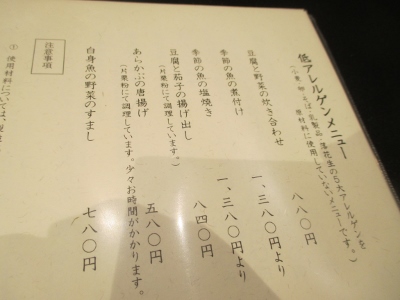 低アレルゲンメニュー
(小麦、卵、そば、乳製品、落花生の5大アレルゲンを
原材料に使用していないメニューです。)
豆腐と野菜の炊き合わせ
八八〇円
季節の魚の煮付け
一、三八〇円より
季節の魚の塩焼き
一、三八〇円より
豆腐と茄子の揚げ出し
(片栗粉にて調理しています。)
八四〇円
あらかぶの唐揚げ
(片栗粉にて調理しています。少々お時間がかかります。)
五八〇円
白身魚の野菜のすまし
七八〇円
注意事項
① 使用材料については、